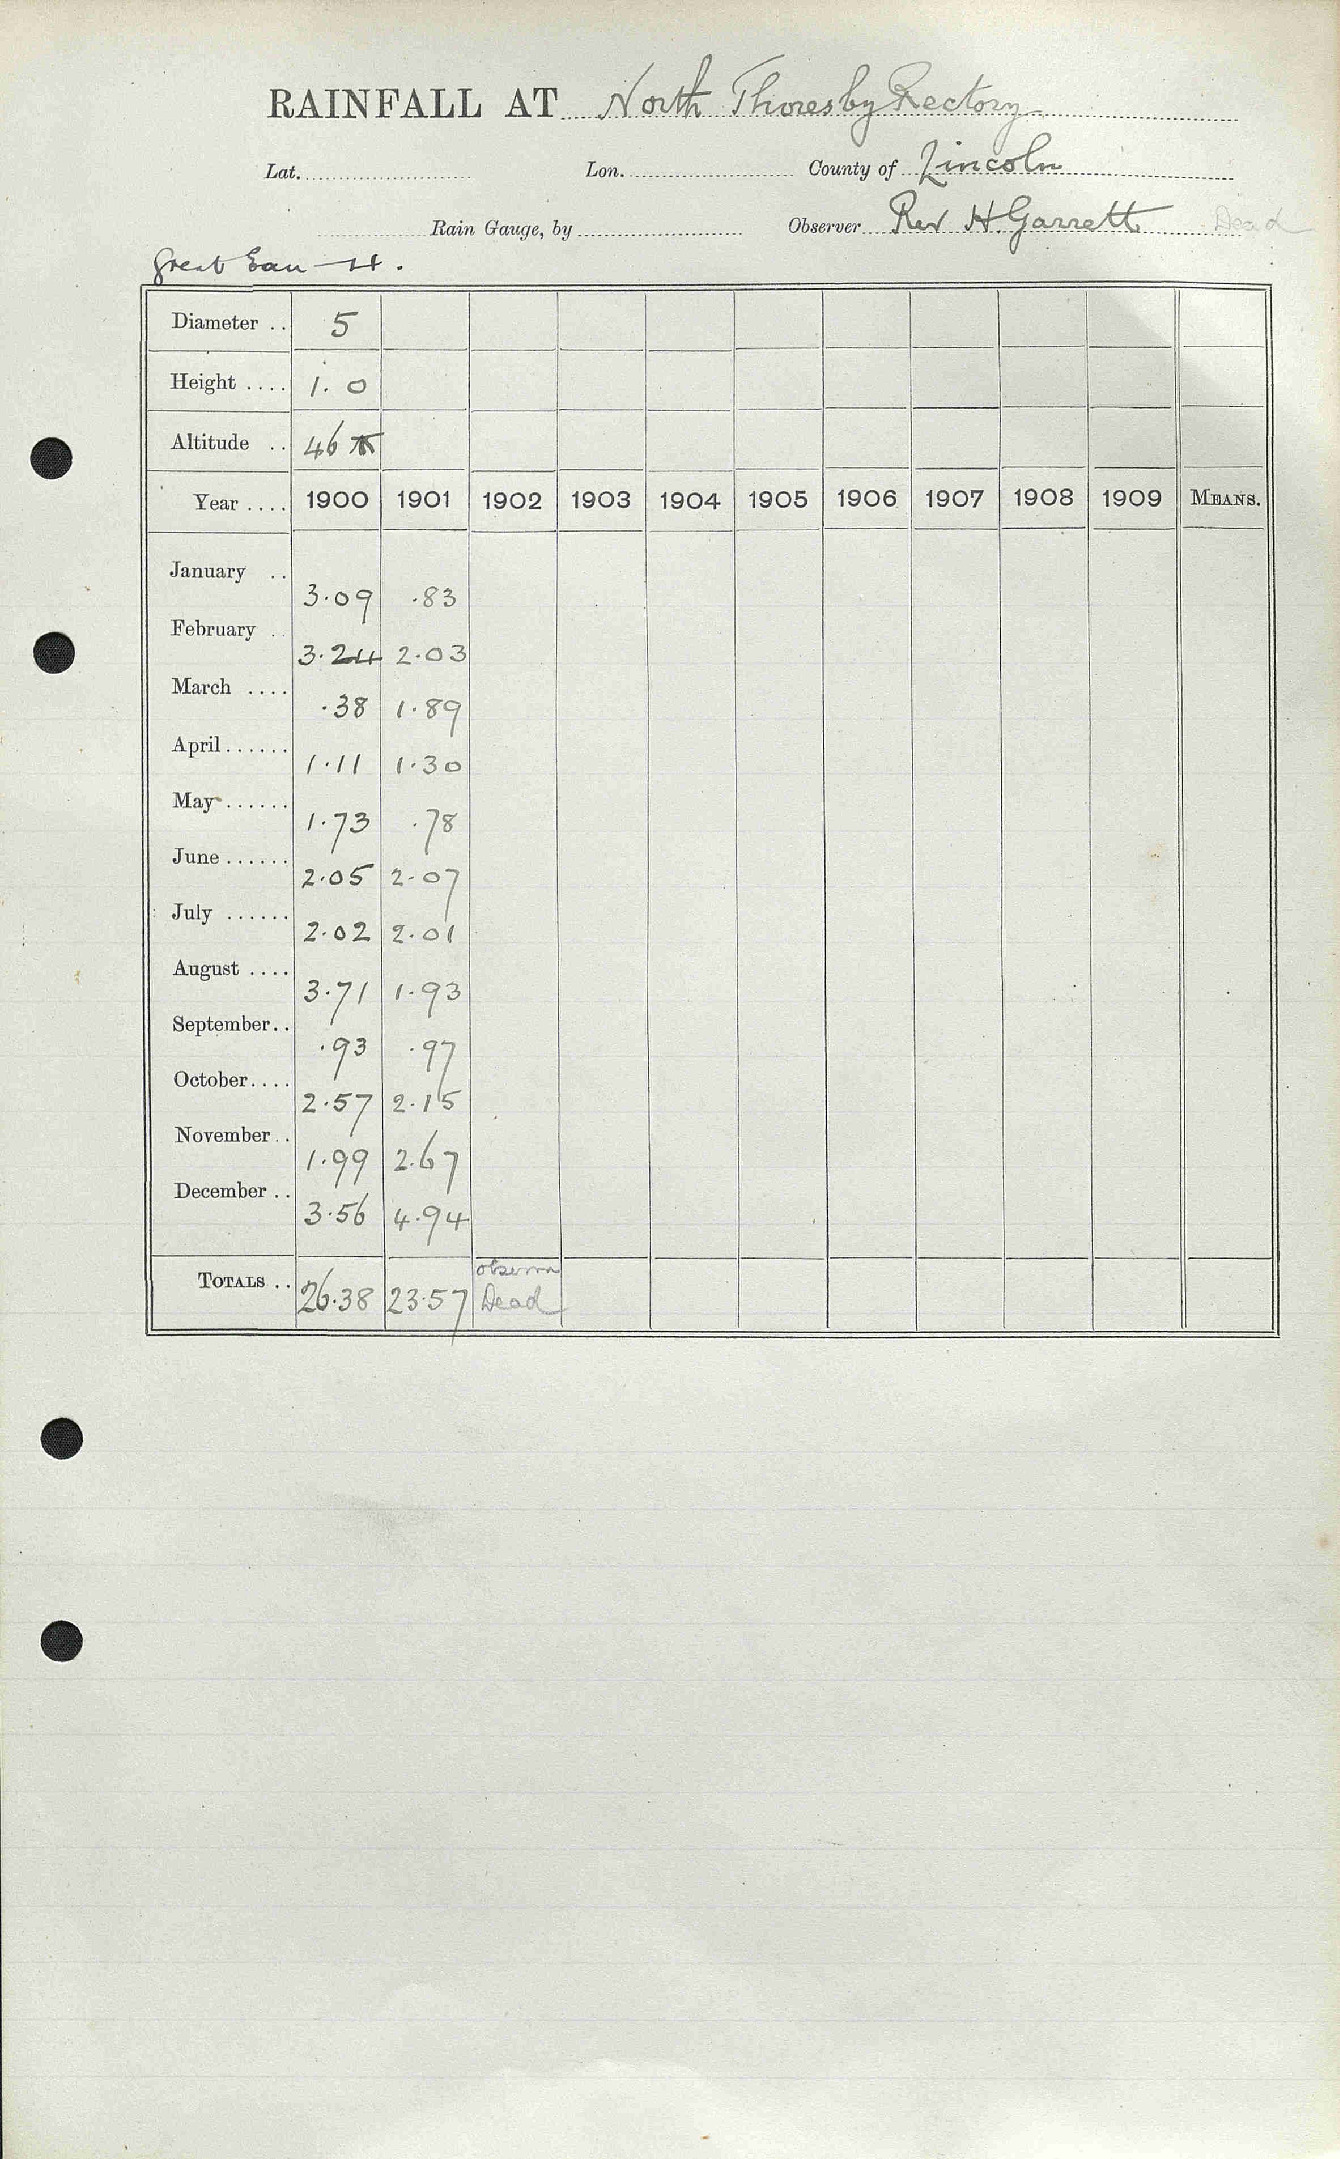 RAINFALL AT North Thoresby Rectory
Lat. Lon. County of Lincoln
Rain Gauge, by Observer Rev H. Garrett Dead
Great Eau — H.
Diameter .. 5
Height .... 1. 0
Altitude .. 46
Year .... 1900 1901 1902 1903 1904 1905 1906 1907 1908 1909 MEANS.
January .. 3.09 .83
February .. 3.24 2.03
March .... .38 1.89
April ...... 1.11 1.30
May ...... 1.73 .78
June ...... 2.05 2.07
July ...... 2.02 2.01
August .... 3.71 1.93
September .. .93 .97
October .... 2.57 2.15
November .. 1.99 2.67
December .. 3.56 4.94
TOTALS .. 26.38 23.57 Dead